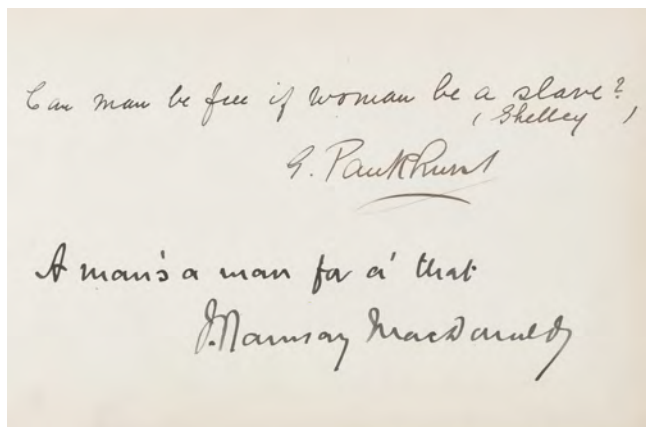 Can man be free if woman be a slave?
(Shelley)
E. Pankhurst
A man's a man for a' that
J. Ramsay MacDonald